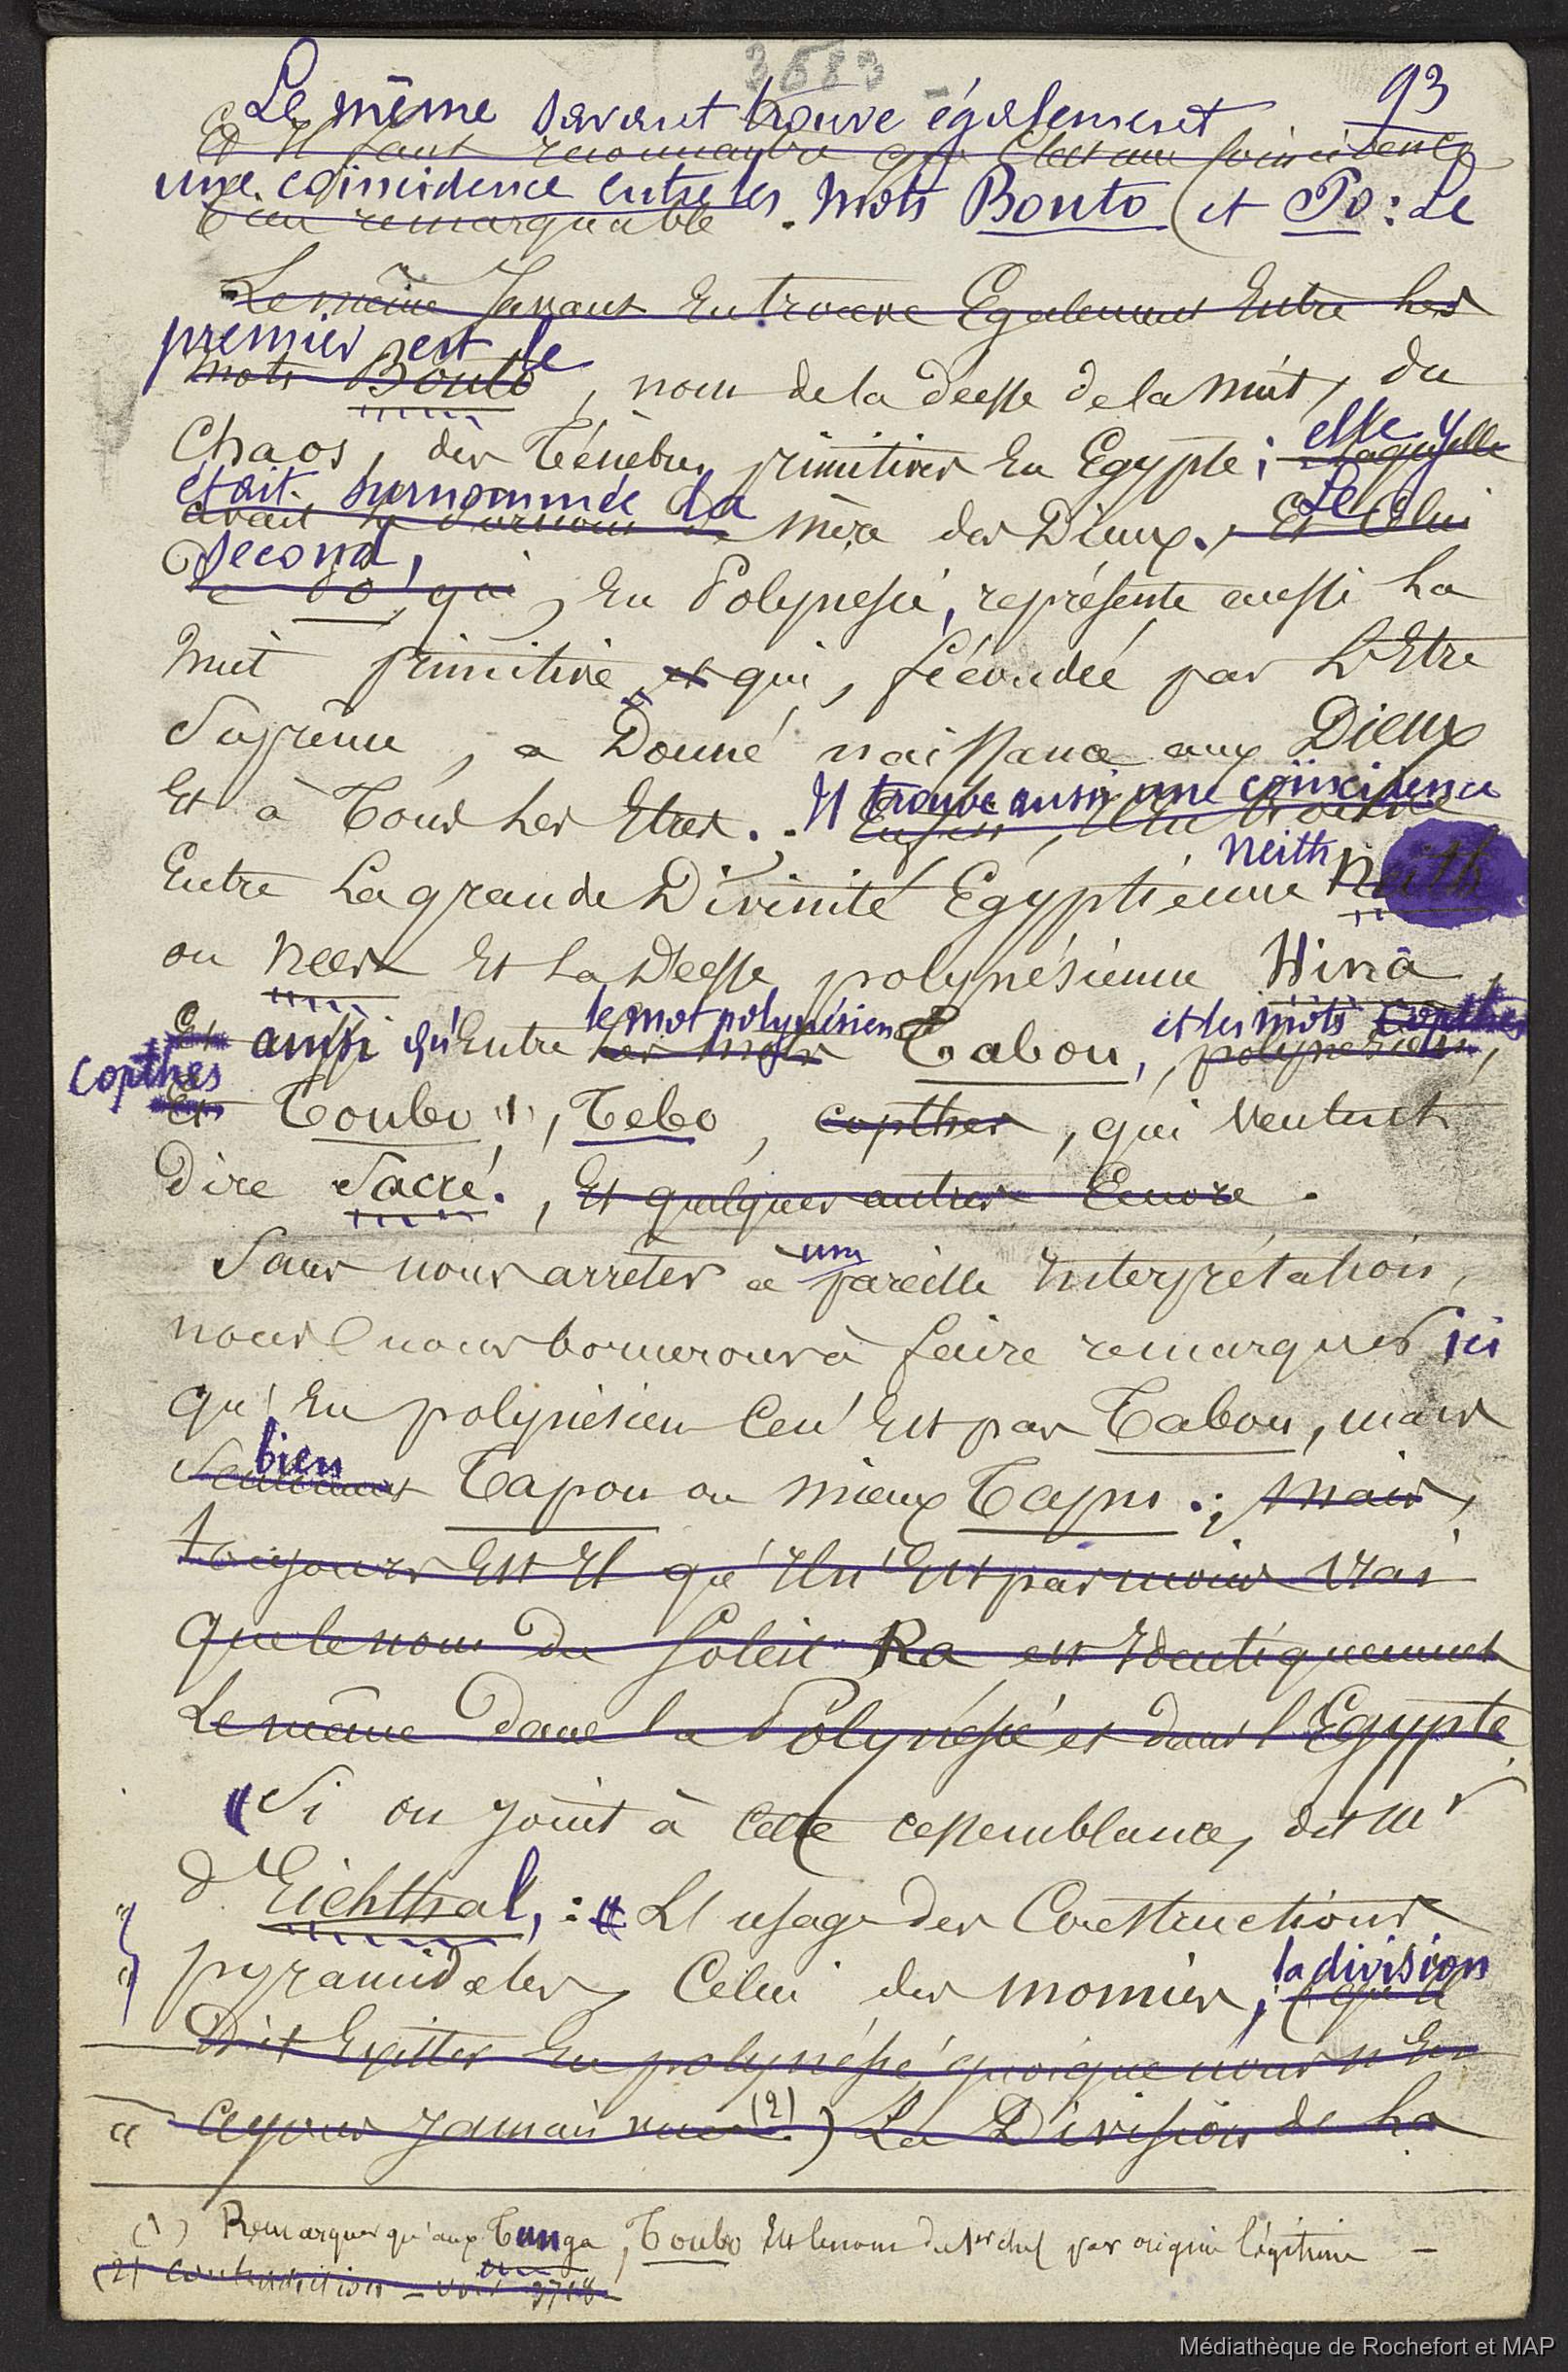 3683
93
Le même savant trouve également
Et Il faut reconnaître que c'est une coincidence
une coïncidence entre les mots Bouto et Po : Le
bien remarquable.
Le même Savant En trouve Egalement Entre Les
premier est le
mots Bouto, nom de la Déesse de la Nuit, du
Chaos, des Ténèbres primitives En Egypte ; elle y
laquelle
était surnommée la
avait le surnom de Mère des Dieux. Et Celui
Le
second,
le Po, qui, En Polynésie, représente aussi La
Nuit primitive et qui, fécondée par L'Etre
Suprême, a Donné naissance aux Dieux
Et à Tous Les Etres. Il trouve aussi une coïncidence
Enfin, Il En trouve
Entre La grande Divinité Egyptienne Neith Neith
ou Neer Et La Déesse polynésienne Hina,
Et ainsi qu'Entre le mot polynésien Les mots Tabou, et les mots copthes polynésien,
copthes
Et Toubo (1), Tebo, copthes, qui Veulent
Dire Sacré., Et quelques autres Encore.
Sans nous arrêter à une pareille Interprétation,
nous nous bornerons à faire remarquer ici
qu'En polynésien Ce n'Est pas Tabou, mais
bien
Seulement Tapou ou mieux Tapu. ; Mais,
toujours Est Il qu'Il n'Est pas moins Vrai
que le nom du Soleil Ra est Identiquement
Le même Dans la Polynésie et dans l'Egypte.
« Si on Joint à Cette ressemblance, dit Mr
d'Eichthal, : « L'usage des Constructions
pyramidales, Celui des momies, la division
(qu'il
Dit Exister En polynésie quoique nous n'En
ayons Jamais vue (2).) La Division de La
(1) Remarquer qu'aux Tunga, Toubo Est le nom du 1er chef par origine légitime —
(2) Contradiction — voir 3718
Médiathèque de Rochefort et MAP